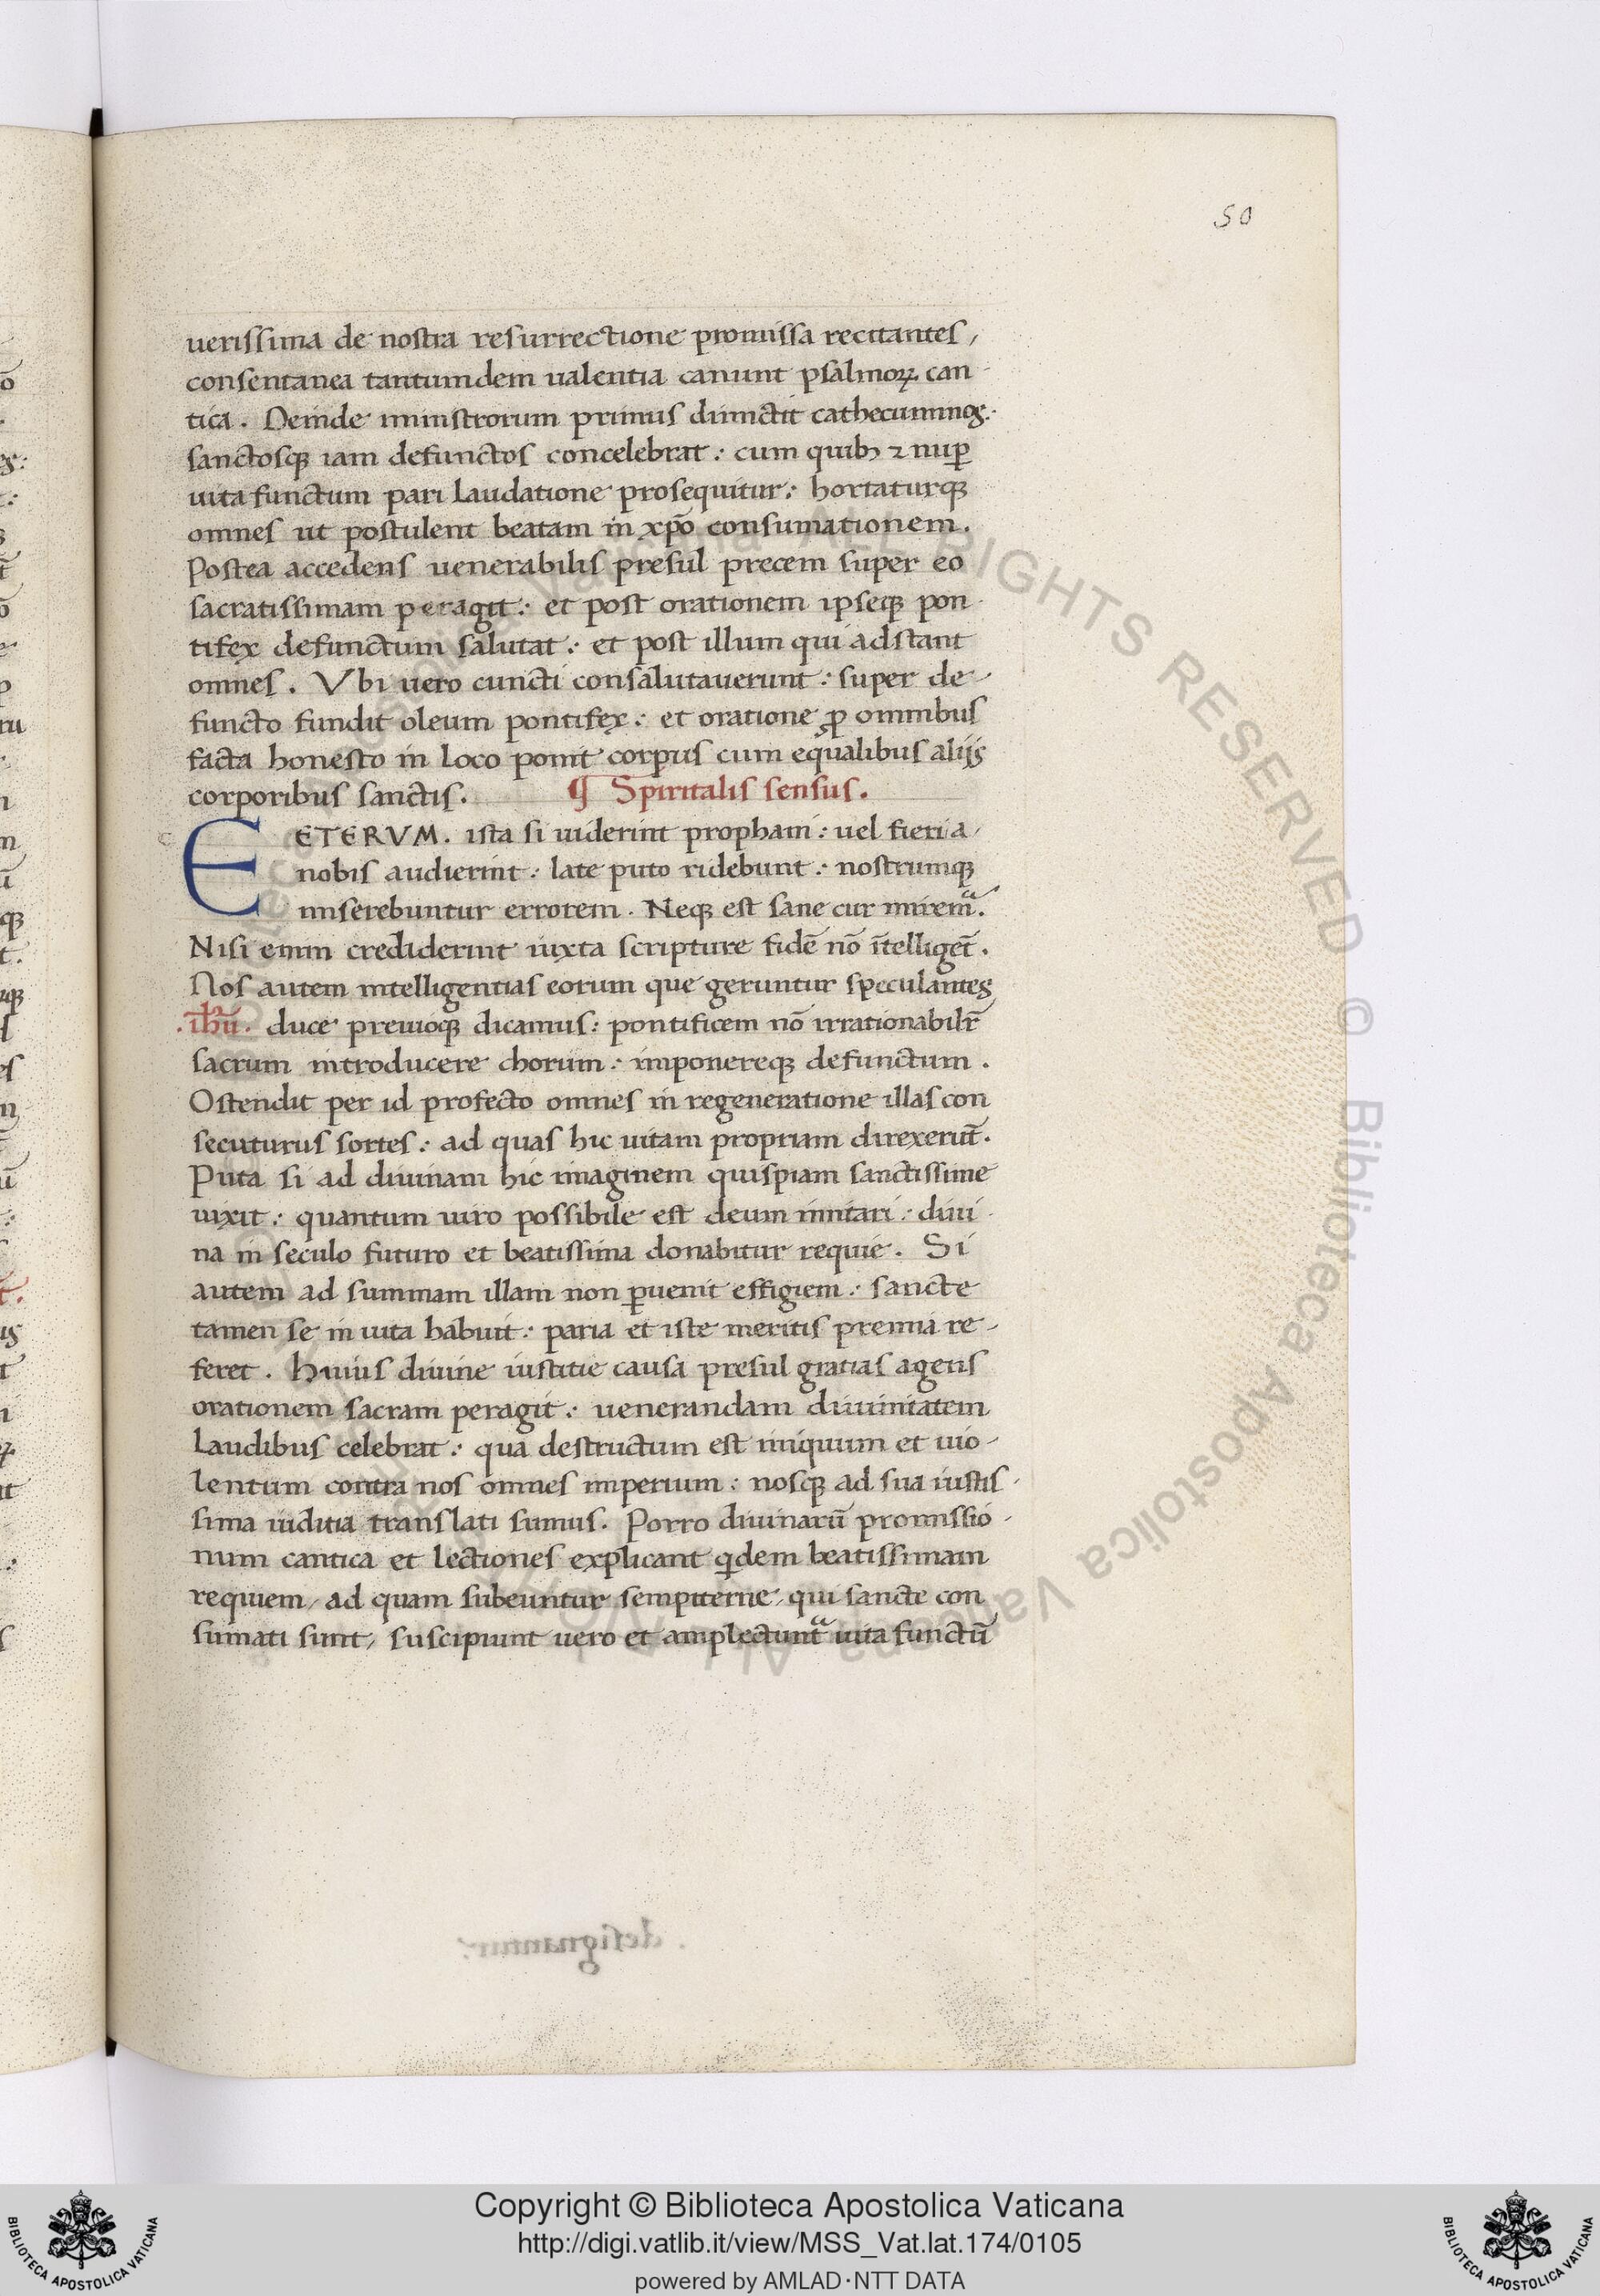 50
uerissima de nostra resurrectione promissa recitantes,
consentanea tantumdem ualentia canunt psalmoꝝ can-
tica. Deinde ministrorum primus dimictit cathecuminos:
sanctosqꝫ iam defunctos concelebrat: cum quibꝫ ⁊ nuꝑ
uita functum pari laudatione prosequitur: hortaturqꝫ
omnes ut postulent beatam in xp̄o consumationem.
Postea accedens uenerabilis presul precem super eo
sacratissimam peragit: et post orationem ipseqꝫ pon-
tifex defunctum salutat: et post illum qui adstant
omnes. Vbi uero cuncti consalutauerunt: super de-
functo fundit oleum pontifex: et oratione ꝓ omnibus
facta honesto in loco ponit corpus cum equalibus alijs
corporibus sanctis. ¶ Spiritalis sensus.
E ETERVM. ista si uiderint prophani: uel fieri a
nobis audierint: late puto ridebunt: nostrumqꝫ
miserebuntur errorem. Neqꝫ est sane cur miremᷓ.
Nisi enim crediderint iuxta scripture fidē nō ītelligēt.
Nos autem intelligentias eorum que geruntur speculantes
.ihū. duce preuioqꝫ dicamus: pontificem nō irrationabilr̄
sacrum introducere chorum: imponereqꝫ defunctum.
Ostendit per id profecto omnes in regeneratione illas con
secuturus sortes: ad quas hic uitam propriam direxerūt.
Puta si ad diuinam hic imaginem quispiam sanctissime
uixit: quantum uiro possibile est deum imitari: diui-
na in seculo futuro et beatissima donabitur requie. Si
autem ad summam illam non ꝑuenit effigiem: sancte
tamen se in uita habuit: paria et iste meritis premia re-
feret. Huius diuine iustitie causa presul gratias agens
orationem sacram peragit: uenerandam diuinitatem
laudibus celebrat: qua destructum est iniquum et uio-
lentum contra nos omnes imperium: nosqꝫ ad sua iustis-
sima iuditia translati sumus. Porro diuinarū promissio-
num cantica et lectiones explicant qͥdem beatissimam
requiem, ad quam subeuntur sempiterne, qui sancte con
sumati sunt, suscipiunt uero et amplectuntᷓ uita functū
. designantur:
Copyright © Biblioteca Apostolica Vaticana
http://digi.vatlib.it/view/MSS_Vat.lat.174/0105
powered by AMLAD·NTT DATA
BIBLIOTECA APOSTOLICA VATICANA
BIBLIOTECA APOSTOLICA VATICANA